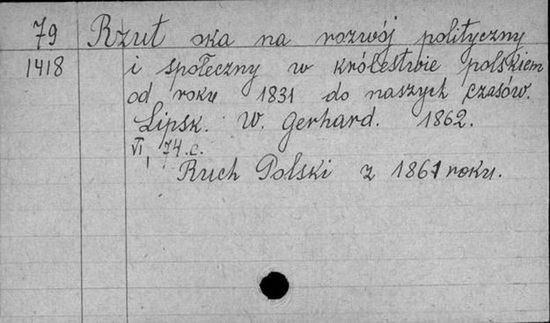 79 Rzut oka na rozwój polityczny
1418 i społeczny w królestwie polskiem
od roku 1831 do naszych czasów.
Lipsk. W. Gerhard. 1862.
VI, 74 c.
Ruch Polski z 1861 roku.